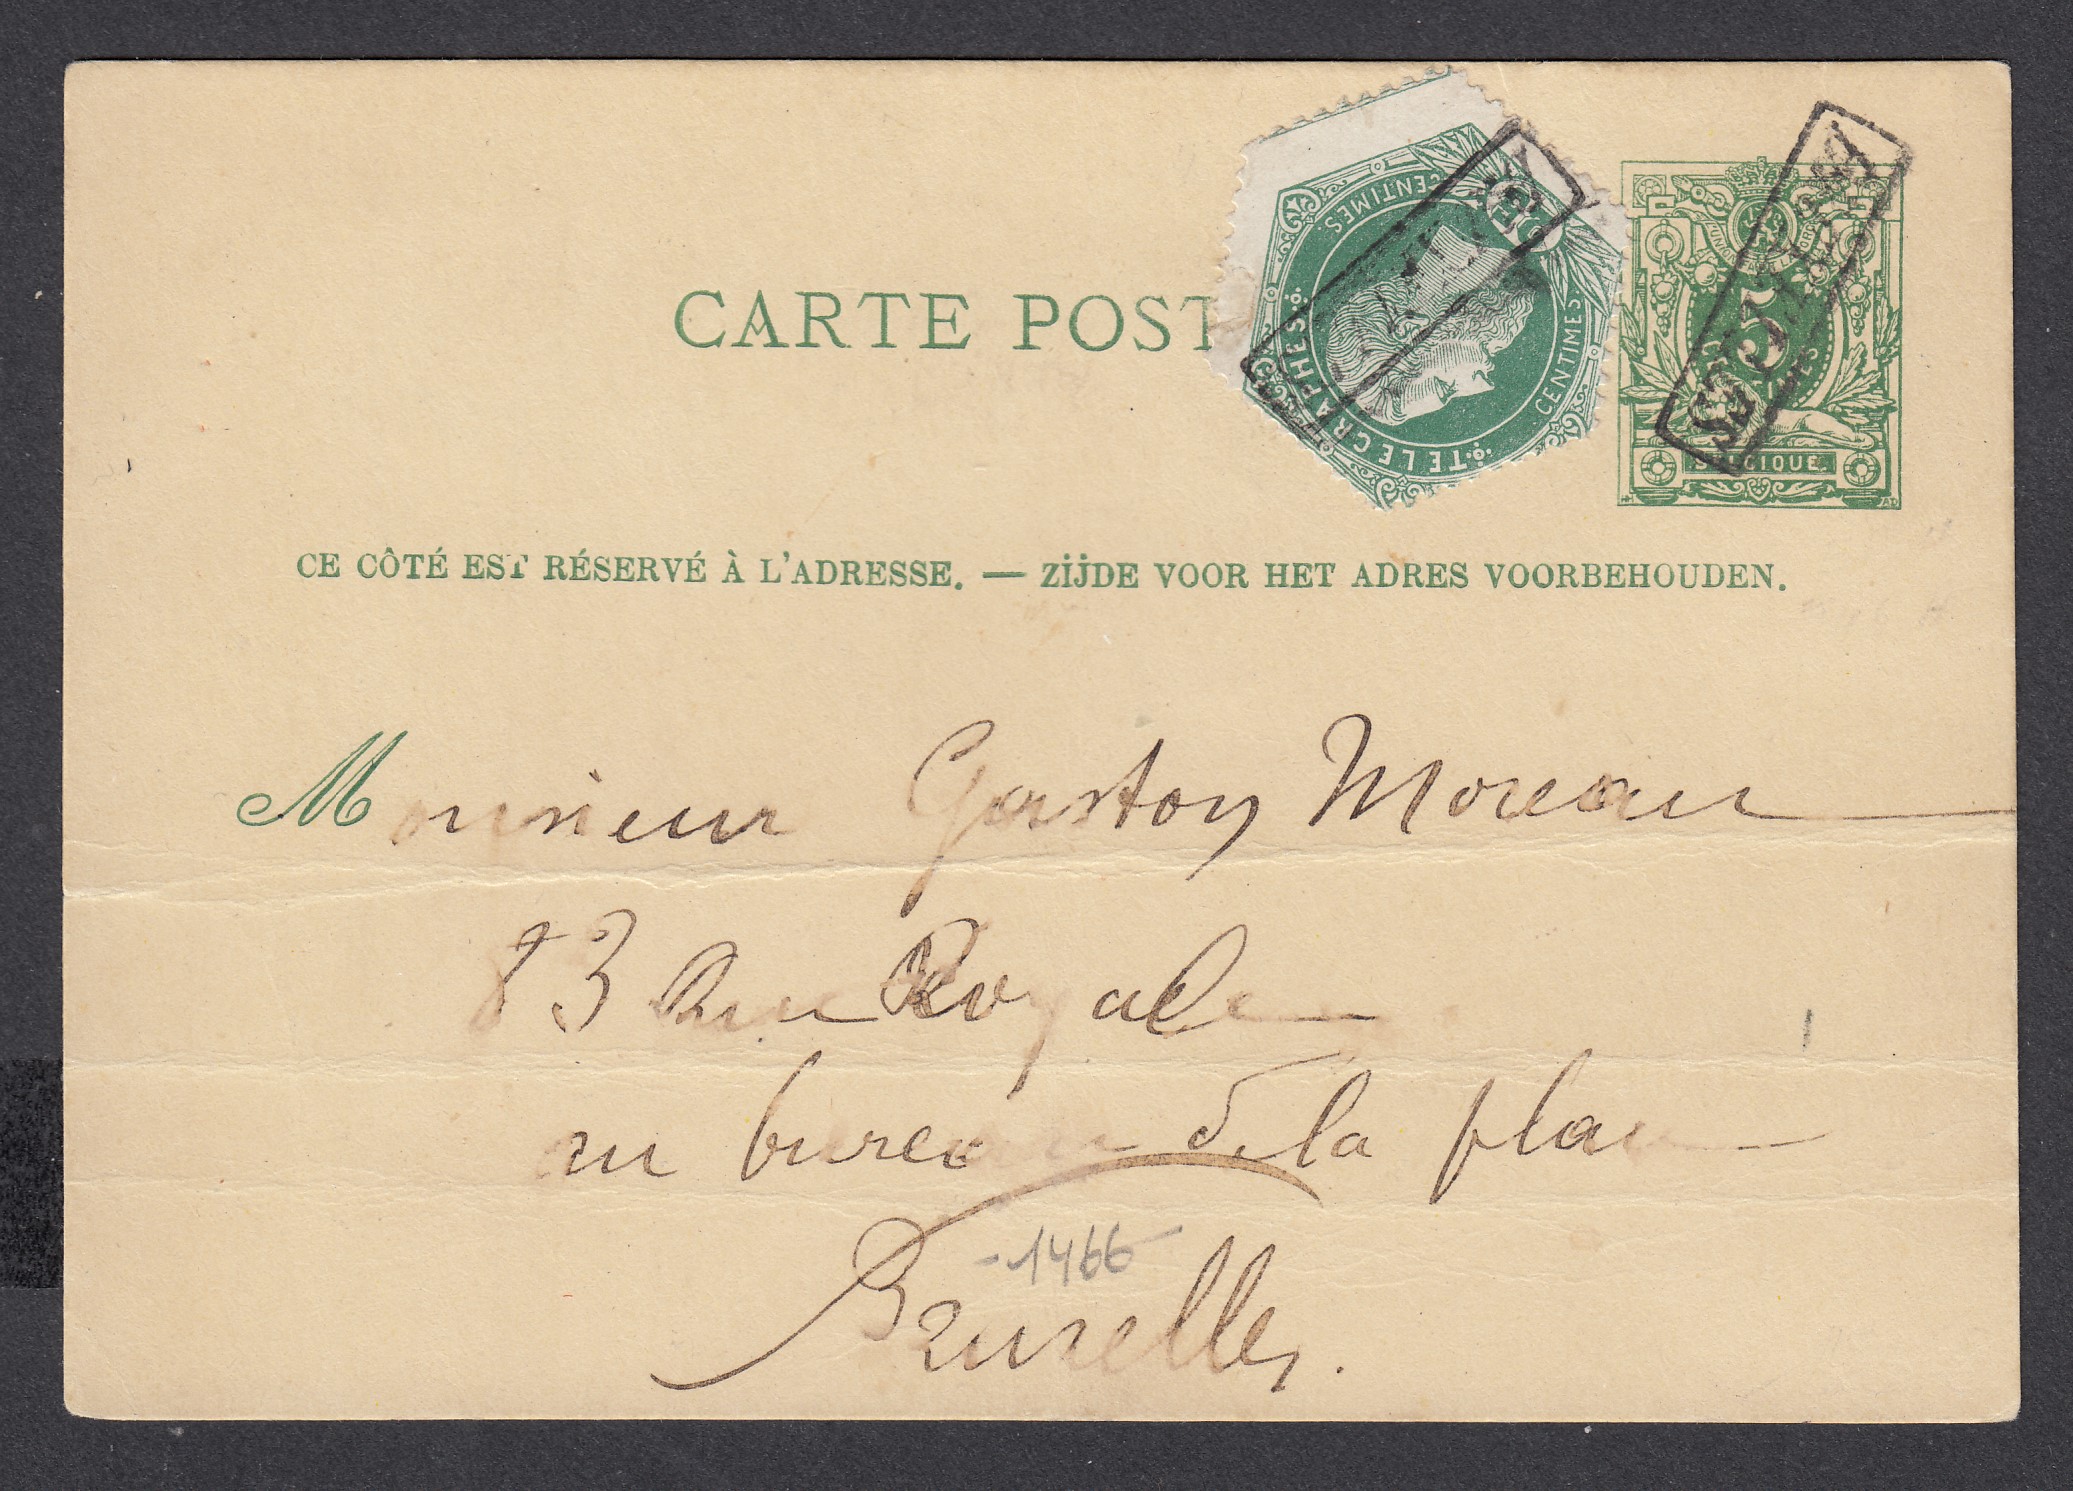 CARTE POST
TELEGRAPHES
CENTIMES
CENTIMES.
5
BELGIQUE
CE CÔTÉ EST RÉSERVÉ À L'ADRESSE. — ZIJDE VOOR HET ADRES VOORBEHOUDEN.
Monsieur Gaston Moreau
83 Rue Royale
au bureau de la place
Bruxelles.
-1466-